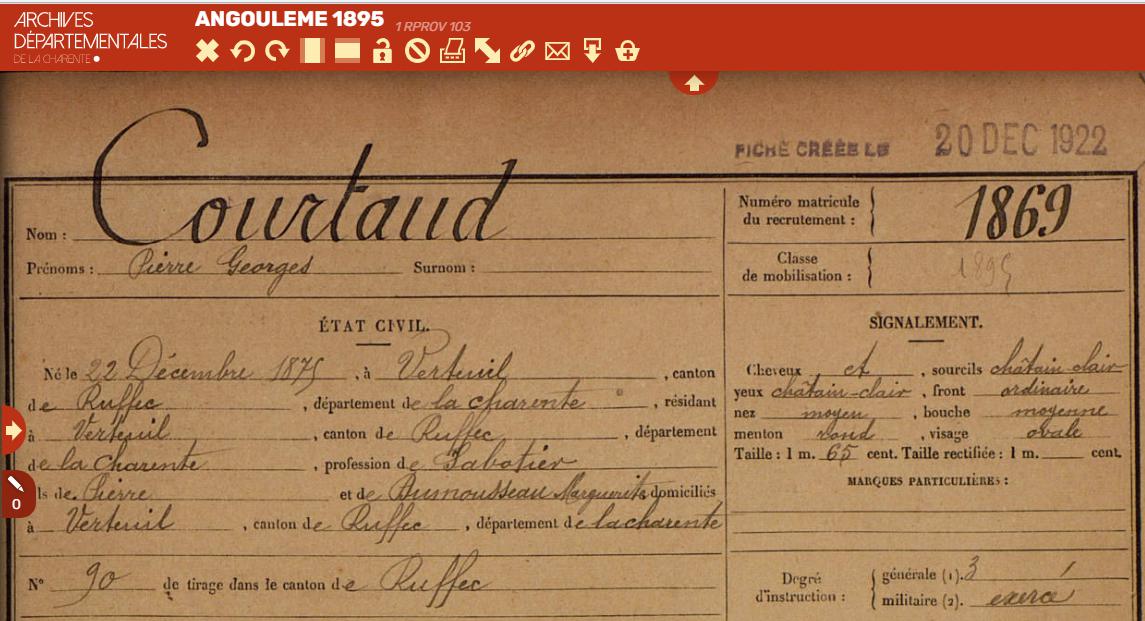 ARCHIVES
DÉPARTEMENTALES
DE LA CHARENTE
ANGOULEME 1895
1 RPROV 103
FICHE CRÉÉE LE 20 DEC 1922
Nom : Courtaud
Prénoms : Pierre Georges Surnom :
Numéro matricule
du recrutement : 1869
Classe
de mobilisation : 1895
ÉTAT CIVIL.
Né le 22 Décembre 1875, à Verteuil, canton
de Ruffec, département de la charente, résidant
à Verteuil, canton de Ruffec, département
de la Charente, profession de Sabotier
ls de Pierre et de Dumousseau Marguerite domiciliés
à Verteuil, canton de Ruffec, département de la charente
N° 90 de tirage dans le canton de Ruffec
SIGNALEMENT.
Cheveux et, sourcils châtain clair
yeux châtain-clair, front ordinaire
nez moyen, bouche moyenne
menton rond, visage ovale
Taille : 1 m. 65 cent. Taille rectifiée : 1 m. cent.
MARQUES PARTICULIÈRES :
Degré
d'instruction :
générale (1). 3
militaire (2). exercé
0